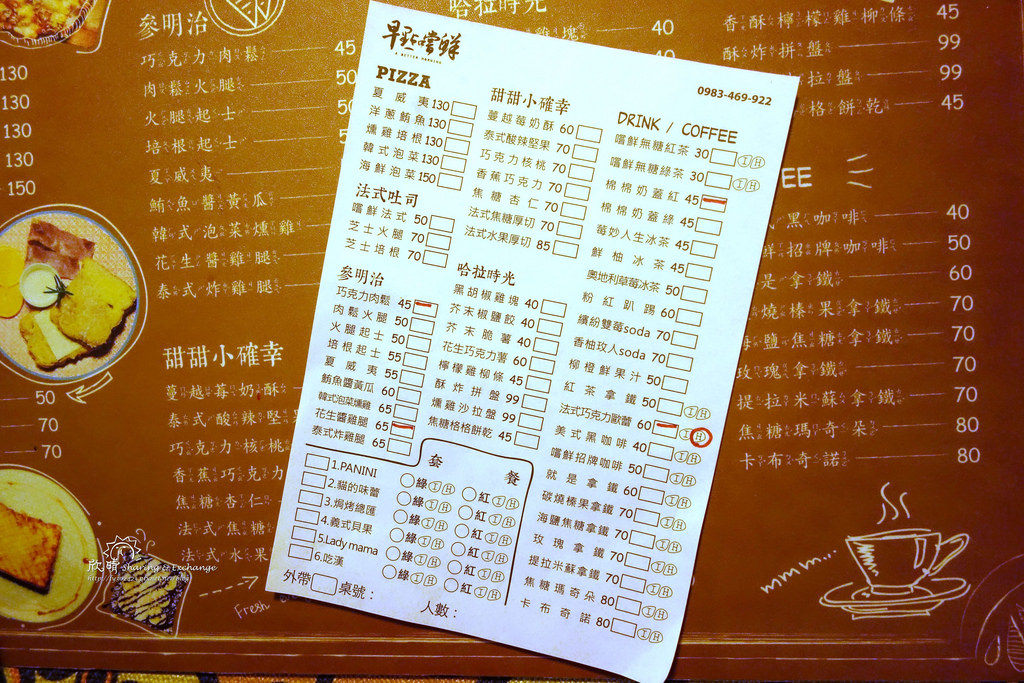 早點嚐鮮
A BETTER MORNING
0983-469-922
PIZZA
夏威夷 130
洋蔥鮪魚 130
燻雞培根 130
韓式泡菜 130
海鮮泡菜 150
法式吐司
嚐鮮法式 50
芝士火腿 70
芝士培根 70
參明治
巧克力肉鬆 45
肉鬆火腿 50
火腿起士 50
培根起士 55
夏威夷 55
鮪魚醬黃瓜 60
韓式泡菜燻雞 65
花生醬雞腿 65
泰式炸雞腿 65
甜甜小確幸
蔓越莓奶酥 60
泰式酸辣堅果 70
巧克力核桃 70
香蕉巧克力 70
焦糖杏仁 70
法式焦糖厚切 70
法式水果厚切 85
哈拉時光
黑胡椒雞塊 40
芥末椒鹽餃 40
芥末脆薯 40
花生巧克力薯 60
檸檬雞柳條 45
酥炸拼盤 99
燻雞沙拉盤 99
焦糖格格餅乾 45
DRINK / COFFEE
嚐鮮無糖紅茶 30 I H
嚐鮮無糖綠茶 30 I H
棉棉奶蓋紅 45
棉棉奶蓋綠 45
莓妙人生冰茶 45
鮮柚冰茶 45
奧地利草莓冰茶 50
粉紅趴踢 60
繽紛雙莓soda 70
香柚玫人soda 70
柳橙鮮果汁 50
紅茶拿鐵 50 I H
法式巧克力歐蕾 60 I H
美式黑咖啡 40 I H
嚐鮮招牌咖啡 50 I H
就是拿鐵 60 I H
碳燒榛果拿鐵 70 I H
海鹽焦糖拿鐵 70 I H
玫瑰拿鐵 70 I H
提拉米蘇拿鐵 70 I H
焦糖瑪奇朵 80 I H
卡布奇諾 80 I H
套餐
1.PANINI 綠 I H 紅 I H
2.貓的味蕾 綠 I H 紅 I H
3.焗烤總匯 綠 I H 紅 I H
4.義式貝果 綠 I H 紅 I H
5.Lady mama 綠 I H 紅 I H
6.吃漢 綠 I H 紅 I H
外帶 桌號：
人數：
130
130
130
150
50
70
70
參明治
巧克力肉鬆 45
肉鬆火腿 50
火腿起士
培根起士
夏威夷
鮪魚醬黃瓜
韓式泡菜燻雞
花生醬雞腿
泰式炸雞腿
甜甜小確幸
蔓越莓奶酥
泰式酸辣堅
巧克力核桃
香蕉巧克力
焦糖杏仁
法式焦糖
法式水果
Fresh
哈拉時光
香酥檸檬雞柳條 45
酥炸拼盤 99
拉盤 99
格餅乾 45
EE
黑咖啡 40
鮮招牌咖啡 50
是拿鐵 60
燒榛果拿鐵 70
海鹽焦糖拿鐵 70
玫瑰拿鐵 70
提拉米蘇拿鐵 70
焦糖瑪奇朵 80
卡布奇諾 80
欣晴 Sharing & Exchange